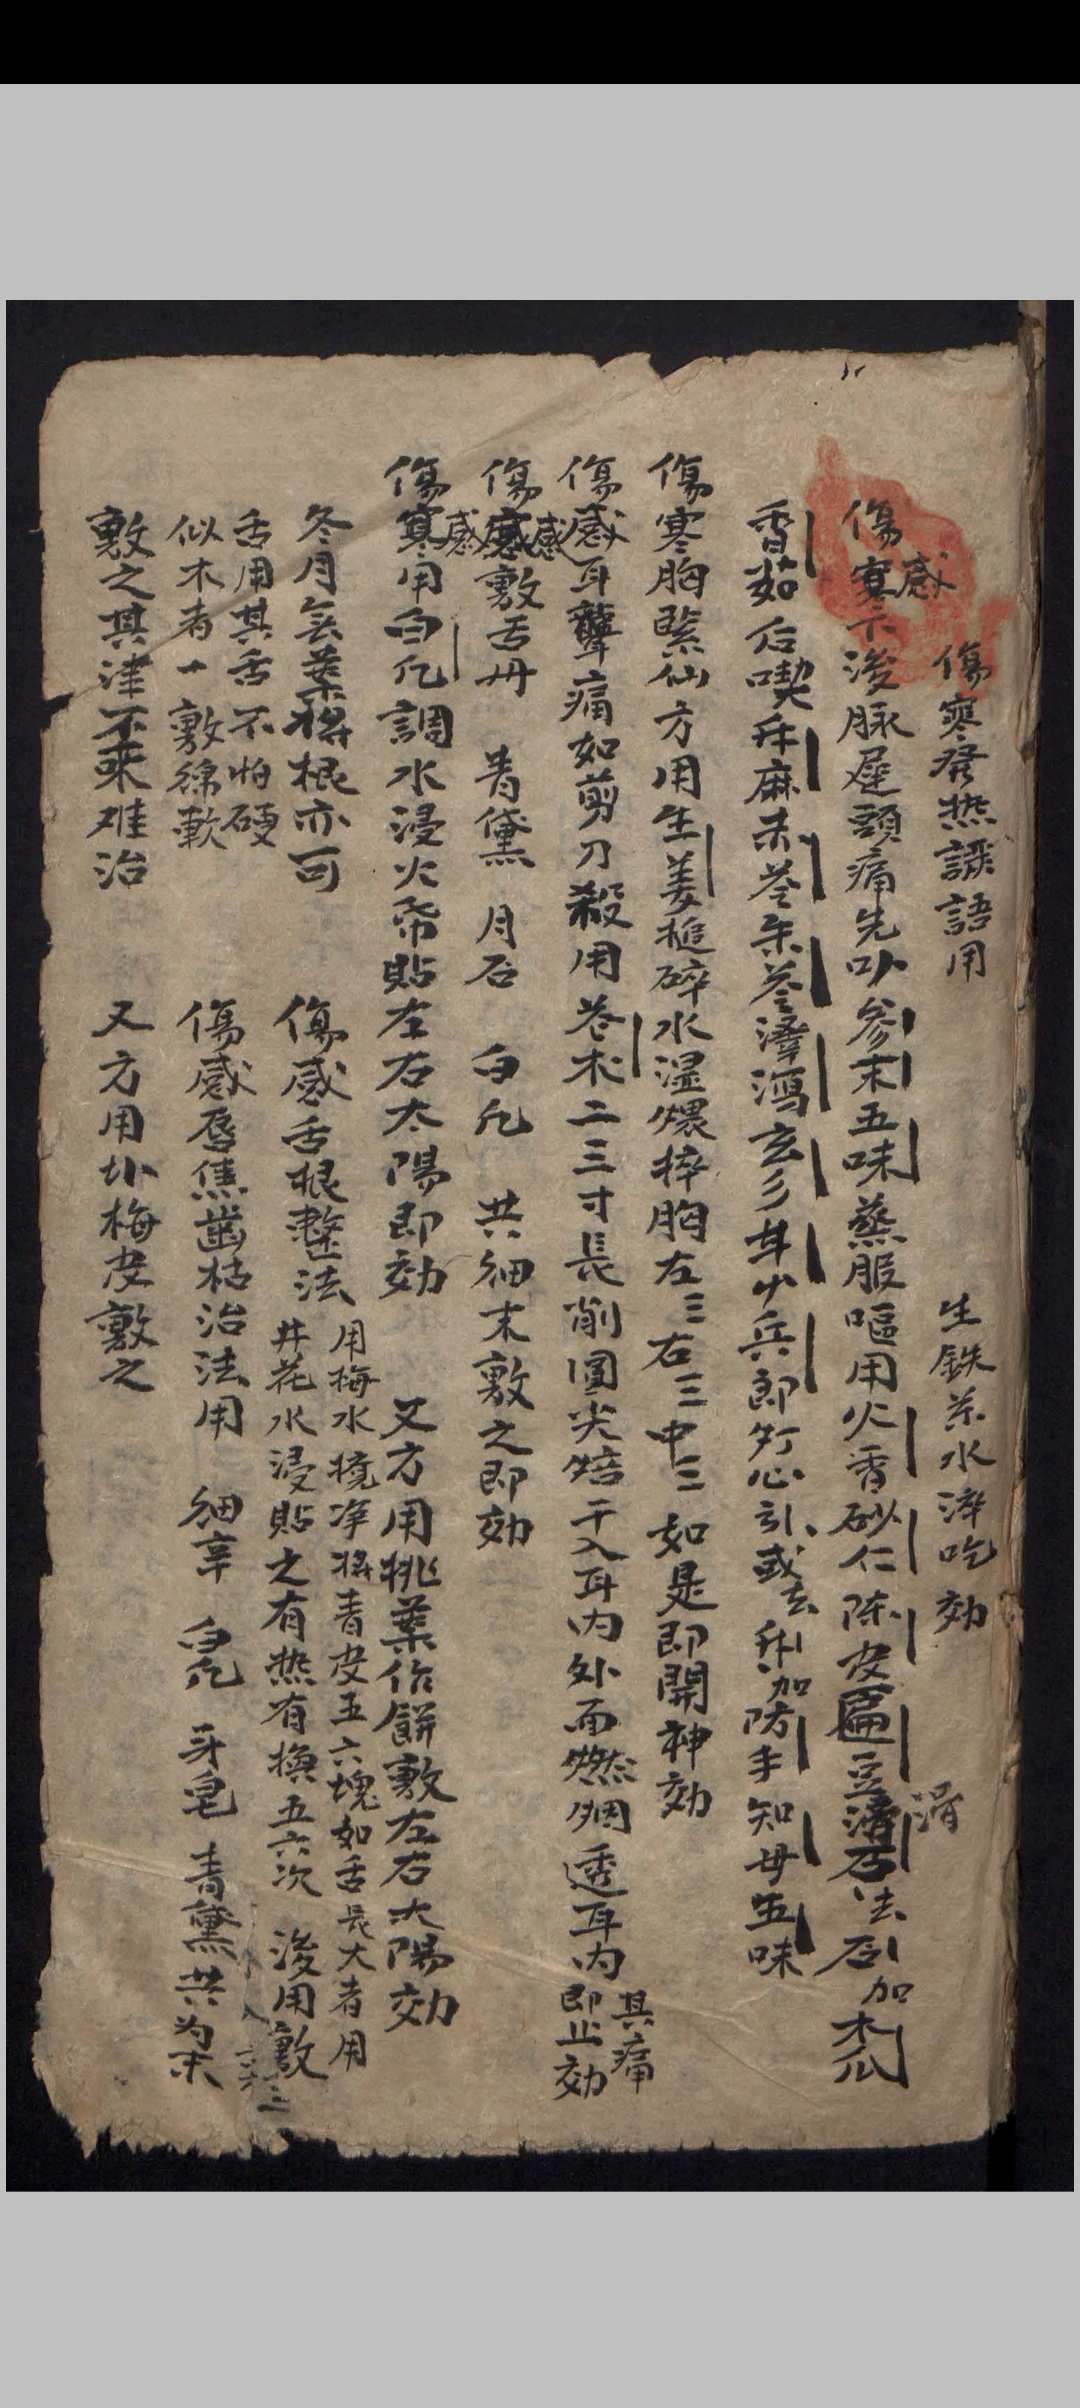 傷寒發热譫語用 生鉄落水淬吃効
傷寒下後脉遲頭痛先吥参末五味蒸服嘔用火香砂仁陈皮匾豆滑石法石加木瓜
感
滑
香茹后喫升麻朱苓朱苓澤瀉玄彡甘少兵郎灯心引或去升加防手知母五味
傷寒胸緊仙方用生姜搥碎水湿煨捽胸左三右三中三如是即開神効
傷感耳聾痛如剪刀殺用苍术二三寸長削圓尖焙干入耳内外面燃烟透耳内其痛即止効
傷感敷舌丹 青黛 月石 白凢 共細末敷之即効
感
傷寒用白凢調水浸火帋貼左右太陽即効 又方用桃葉作餅敷左右太陽効
感
冬月無葉将根亦可 傷感舌根整法
用梅水擦净将青皮五六塊如舌長大者用
井花水浸貼之有热有換五六次 後用敷
舌用其舌不怕硬
似木者一敷綿軟 傷感唇焦齒枯治法用 細辛 白凢 牙皂 青黛共为末
敷之其津不來难治 又方用卟梅皮敷之